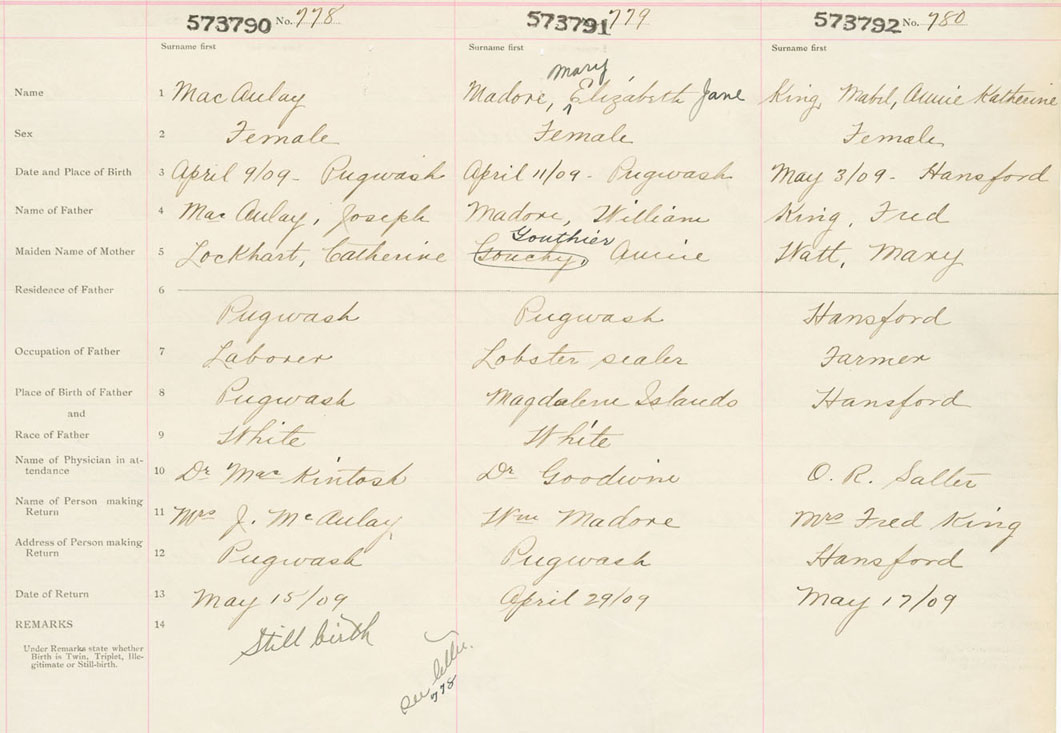 573790 No. 778 573791 779 573792 No. 780
Surname first Surname first Surname first
Mary
Name 1 MacAulay Madore, ^ Elizabeth Jane King, Mabel, Annie Katherine
Sex 2 Female Female Female
Date and Place of Birth 3 April 9/09 - Pugwash April 11/09 - Pugwash May 3/09 - Hansford
Name of Father 4 MacAulay, Joseph Madore, William King, Fred
Gouthier
Maiden Name of Mother 5 Lockhart, Catherine Gouchy, Annie Watt, Mary
Residence of Father 6
Pugwash Pugwash Hansford
Occupation of Father 7 Laborer Lobster sealer Farmer
Place of Birth of Father 8 Pugwash Magdalene Islands Hansford
and
Race of Father 9 White White
Name of Physician in at-
tendance 10 Dr MacKintosh Dr Goodwine O. R. Salter
Name of Person making
Return 11 Mrs J. McAulay, Wm Madore Mrs Fred King
Address of Person making
Return 12 Pugwash Pugwash Hansford
Date of Return 13 May 15/09 April 29/09 May 17/09
REMARKS 14
Still birth
Under Remarks state whether
Birth is Twin, Triplet, Ille-
gitimate or Still-birth.
see letter.
778